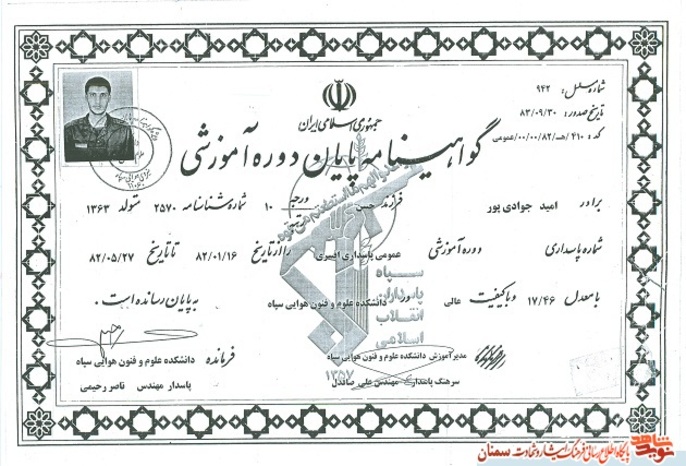 جمهوری اسلامی ایران
گواهینامه پایان دوره آموزشی
شماره مسلسل: ۹۴۲
تاریخ صدور: ۸۳/۰۹/۳۰
کد: ۴۱۰/هـ/۰۰/۰۰/۸۲/عمومی
برادر امید جوادی پور فرزند حسن درجه ۱۰ شماره شناسنامه ۲۵۷۰ متولد ۱۳۶۳
شماره پاسداری دوره آموزشی عمومی پاسداری افسری را از تاریخ ۸۲/۰۱/۱۶ تا تاریخ ۸۲/۰۵/۲۷
با معدل ۱۷/۴۶ و با کیفیت عالی در دانشکده علوم و فنون هوایی سپاه به پایان رسانده است.
سپاه
پاسداران
انقلاب
اسلامی
۱۳۵۷
مدیر آموزش دانشکده علوم و فنون هوایی سپاه
سرهنگ پاسدار مهندس علی صاندل
فرمانده دانشکده علوم و فنون هوایی سپاه
پاسدار مهندس ناصر رحیمی
نوید شاهد
پایگاه اطلاع رسانی فرهنگ ایثار و شهادت سمنان